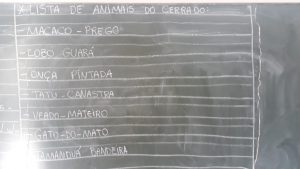 * LISTA DE ANIMAIS DO CERRADO:
- MACACO - PREGO
- LOBO GUARÁ
- ONÇA PINTADA
- TATU - CANASTRA
- VEADO - MATEIRO
- GATO-DO-MATO
- TAMANDUÁ BANDEIRA